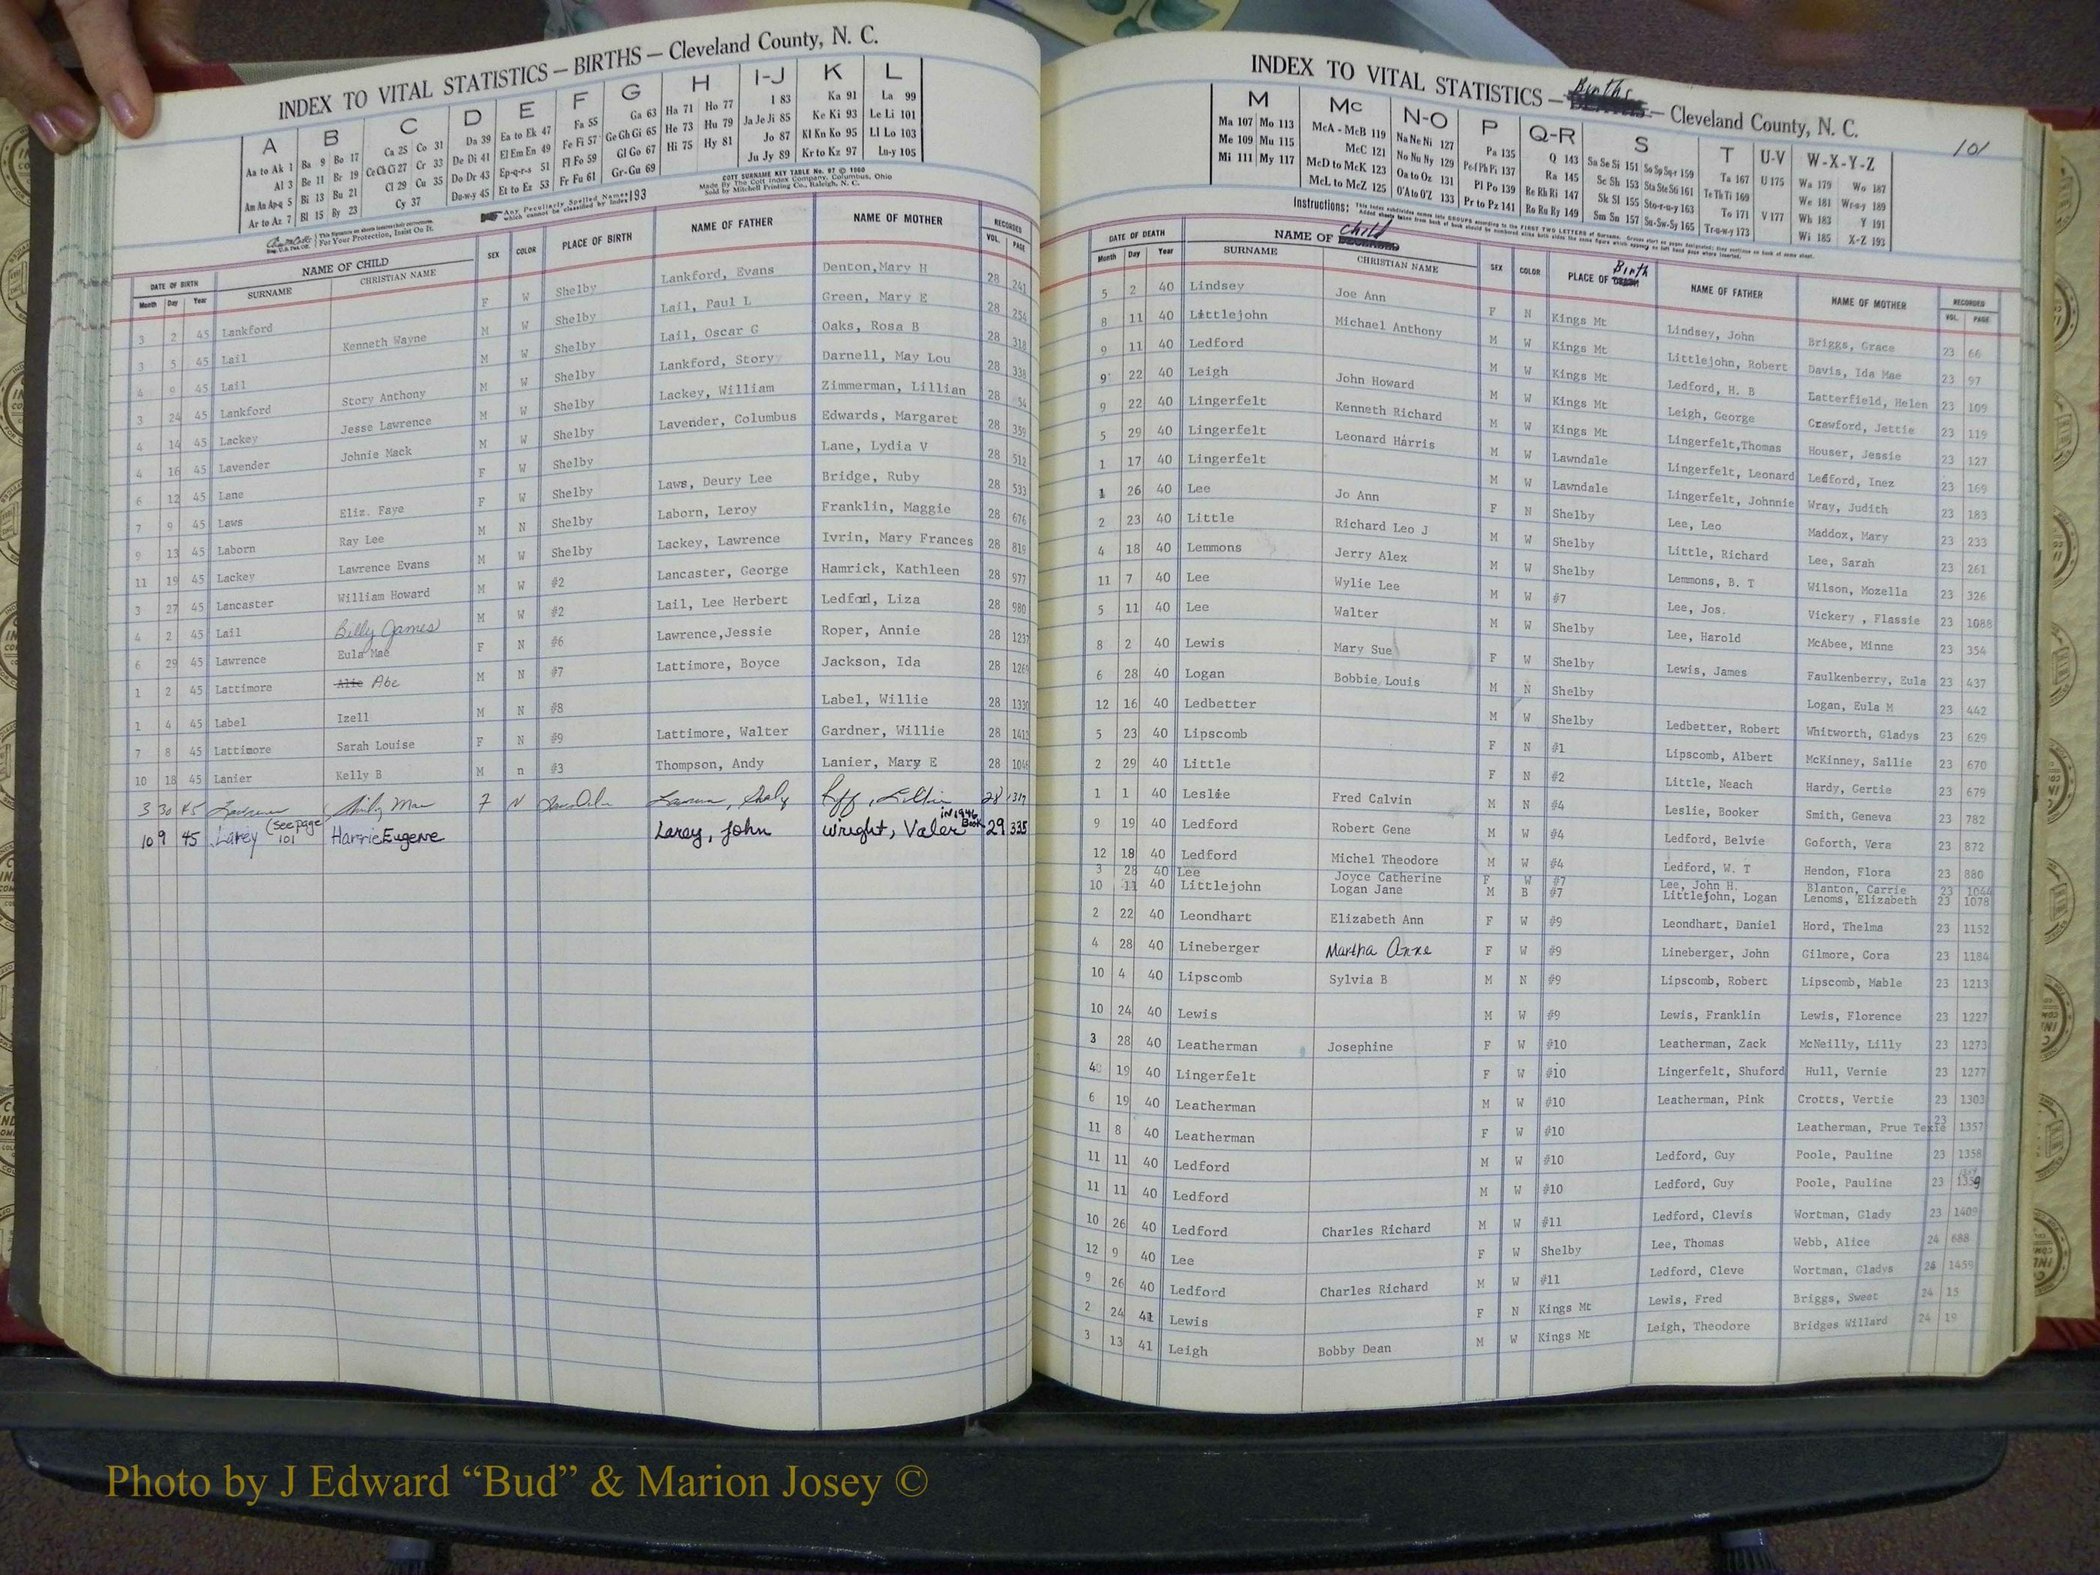 INDEX TO VITAL STATISTICS — BIRTHS — Cleveland County, N. C.
A B C D E F G H I-J K L
Aa to Ak 1 Ba 9 Bo 17 Ca 25 Co 31 Da 39 Ea to Ek 47 Fa 55 Ga 63 Ha 71 Ho 77 I 83 Ka 91 La 99
Al 3 Be 11 Br 19 Ce Ch Ci 27 Cr 33 De Di 41 El Em En 49 Fe Fi 57 Ge Gh Gi 65 He 73 Hu 79 Ja Je Ji 85 Ke Ki 93 Le Li 101
Am An Ap-q 5 Bi 13 Bu 21 Cl 29 Cu 35 Do Dr 43 Ep-q-r-s 51 Fl Fo 59 Gl Go 67 Hi 75 Hy 81 Jo 87 Kl Kn Ko 95 Ll Lo 103
Ar to Az 7 Bl 15 By 23 Cy 37 Du-w-y 45 Et to Ez 53 Fr Fu 61 Gr-Gu 69 Ju Jy 89 Kr to Kz 97 Lu-y 105
This Signature on sheets insures their correctness. For Your Protection, Insist On It.
Any Peculiarly Spelled Names which cannot be classified by Index 193
COTT SURNAME KEY TABLE No. 97 © 1960
Made By The Cott Index Company, Columbus, Ohio
Sold by Mitchell Printing Co., Raleigh, N. C.
DATE OF BIRTH NAME OF CHILD SEX COLOR PLACE OF BIRTH NAME OF FATHER NAME OF MOTHER RECORDED
Month Day Year SURNAME CHRISTIAN NAME VOL. PAGE
3 2 45 Lankford F W Shelby Lankford, Evans Denton,Mary H 28 241
3 5 45 Lail Kenneth Wayne M W Shelby Lail, Paul L Green, Mary E 28 254
4 9 45 Lail M W Shelby Lail, Oscar G Oaks, Rosa B 28 318
3 24 45 Lankford Story Anthony M W Shelby Lankford, Story Darnell, May Lou 28 338
4 14 45 Lackey Jesse Lawrence M W Shelby Lackey, William Zimmerman, Lillian 28 54
4 16 45 Lavender Johnie Mack M W Shelby Lavender, Columbus Edwards, Margaret 28 359
6 12 45 Lane F W Shelby Lane, Lydia V 28 512
7 9 45 Laws Eliz. Faye F W Shelby Laws, Deury Lee Bridge, Ruby 28 533
9 13 45 Laborn Ray Lee M N Shelby Laborn, Leroy Franklin, Maggie 28 676
11 19 45 Lackey Lawrence Evans M W Shelby Lackey, Lawrence Ivrin, Mary Frances 28 819
3 27 45 Lancaster William Howard M W #2 Lancaster, George Hamrick, Kathleen 28 977
4 2 45 Lail Billy James M W #2 Lail, Lee Herbert Ledford, Liza 28 980
6 29 45 Lawrence Eula Mae F N #6 Lawrence,Jessie Roper, Annie 28 1237
1 2 45 Lattimore Alie Abe M N #7 Lattimore, Boyce Jackson, Ida 28 1269
1 4 45 Label Izell M N #8 Label, Willie 28 1330
7 8 45 Lattimore Sarah Louise F N #9 Lattimore, Walter Gardner, Willie 28 1412
10 18 45 Lanier Kelly B M n #3 Thompson, Andy Lanier, Mary E 28 1046
3 30 45 F N 28 1317
10 9 45 Larey (see page 101 Harrie Eugene Larey, John Wright, Valer in 1946 Book 29 335
INDEX TO VITAL STATISTICS — Births — Cleveland County, N. C.
101
M Mc N-O P Q-R S T U-V W-X-Y-Z
Ma 107 Mo 113 McA - McB 119 Na Ne Ni 127 Pa 135 Q 143 Sa Se Si 151 So Sp Sq-r 159 Ta 167 U 175 Wa 179 Wo 187
Me 109 Mu 115 McC 121 No Nu Ny 129 Pe-f Ph Pi 137 Ra 145 Sc Sh 153 Sta Ste Sti 161 Te Th Ti 169 We 181 Wr-u-y 189
Mi 111 My 117 McD to McK 123 Oa to Oz 131 Pl Po 139 Re Rh Ri 147 Sk Sl 155 Sto-r-u-y 163 To 171 V 177 Wh 183 Y 191
McL to McZ 125 O'A to O'Z 133 Pr to Pz 141 Ro Ru Ry 149 Sm Sn 157 Su-Sw-Sy 165 Tr-u-w-y 173 Wi 185 X-Z 193
Instructions: This Index subdivides names into GROUPS according to the FIRST TWO LETTERS of Surname.
DATE OF DEATH NAME OF Child SEX COLOR PLACE OF Birth NAME OF FATHER NAME OF MOTHER RECORDED
Month Day Year SURNAME CHRISTIAN NAME VOL. PAGE
5 2 40 Lindsey Joe Ann F N Kings Mt Lindsey, John Briggs, Grace 23 66
8 11 40 Littlejohn Michael Anthony M W Kings Mt Littlejohn, Robert Davis, Ida Mae 23 97
9 11 40 Ledford M W Kings Mt Ledford, H. B Latterfield, Helen 23 109
9 22 40 Leigh John Howard M W Kings Mt Leigh, George Crawford, Jettie 23 119
9 22 40 Lingerfelt Kenneth Richard M W Kings Mt Lingerfelt,Thomas Houser, Jessie 23 127
5 29 40 Lingerfelt Leonard Harris M W Lawndale Lingerfelt, Leonard Ledford, Inez 23 169
1 17 40 Lingerfelt M W Lawndale Lingerfelt, Johnnie Wray, Judith 23 183
1 26 40 Lee Jo Ann F N Shelby Lee, Leo Maddox, Mary 23 233
2 23 40 Little Richard Leo J M W Shelby Little, Richard Lee, Sarah 23 261
4 18 40 Lemmons Jerry Alex M W Shelby Lemmons, B. T Wilson, Mozella 23 326
11 7 40 Lee Wylie Lee M W #7 Lee, Jos. Vickery , Flassie 23 1088
5 11 40 Lee Walter M W Shelby Lee, Harold McAbee, Minne 23 354
8 2 40 Lewis Mary Sue F W Shelby Lewis, James Faulkenberry, Eula 23 437
6 28 40 Logan Bobbie Louis M N Shelby Logan, Eula M 23 442
12 16 40 Ledbetter M W Shelby Ledbetter, Robert Whitworth, Gladys 23 629
5 23 40 Lipscomb F N #1 Lipscomb, Albert McKinney, Sallie 23 670
2 29 40 Little F N #2 Little, Neach Hardy, Gertie 23 679
1 1 40 Leslie Fred Calvin M N #4 Leslie, Booker Smith, Geneva 23 782
9 19 40 Ledford Robert Gene M W #4 Ledford, Belvie Goforth, Vera 23 872
12 18 40 Ledford Michel Theodore M W #4 Ledford, W. T Hendon, Flora 23 880
3 28 40 Lee Joyce Catherine F W #7 Lee, John H. Blanton, Carrie 23 1044
10 11 40 Littlejohn Logan Jane M B #7 Littlejohn, Logan Lenoms, Elizabeth 23 1078
2 22 40 Leondhart Elizabeth Ann F W #9 Leondhart, Daniel Hord, Thelma 23 1152
4 28 40 Lineberger Martha Anne F W #9 Lineberger, John Gilmore, Cora 23 1184
10 4 40 Lipscomb Sylvia B M N #9 Lipscomb, Robert Lipscomb, Mable 23 1213
10 24 40 Lewis M W #9 Lewis, Franklin Lewis, Florence 23 1227
3 28 40 Leatherman Josephine F W #10 Leatherman, Zack McNeilly, Lilly 23 1273
4 19 40 Lingerfelt F W #10 Lingerfelt, Shuford Hull, Vernie 23 1277
6 19 40 Leatherman M W #10 Leatherman, Pink Crotts, Vertie 23 1303
11 8 40 Leatherman F W #10 Leatherman, Prue Texie 23 1357
11 11 40 Ledford M W #10 Ledford, Guy Poole, Pauline 23 1358
11 11 40 Ledford M W #10 Ledford, Guy Poole, Pauline 23 1359
10 26 40 Ledford Charles Richard M W #11 Ledford, Clevis Wortman, Glady 23 1409
12 9 40 Lee F W Shelby Lee, Thomas Webb, Alice 24 688
9 26 40 Ledford Charles Richard M W #11 Ledford, Cleve Wortman, Gladys 24 1459
2 24 41 Lewis F N Kings Mt Lewis, Fred Briggs, Sweet 24 15
3 13 41 Leigh Bobby Dean M W Kings Mt Leigh, Theodore Bridges Willard 24 19
Photo by J Edward “Bud” & Marion Josey ©